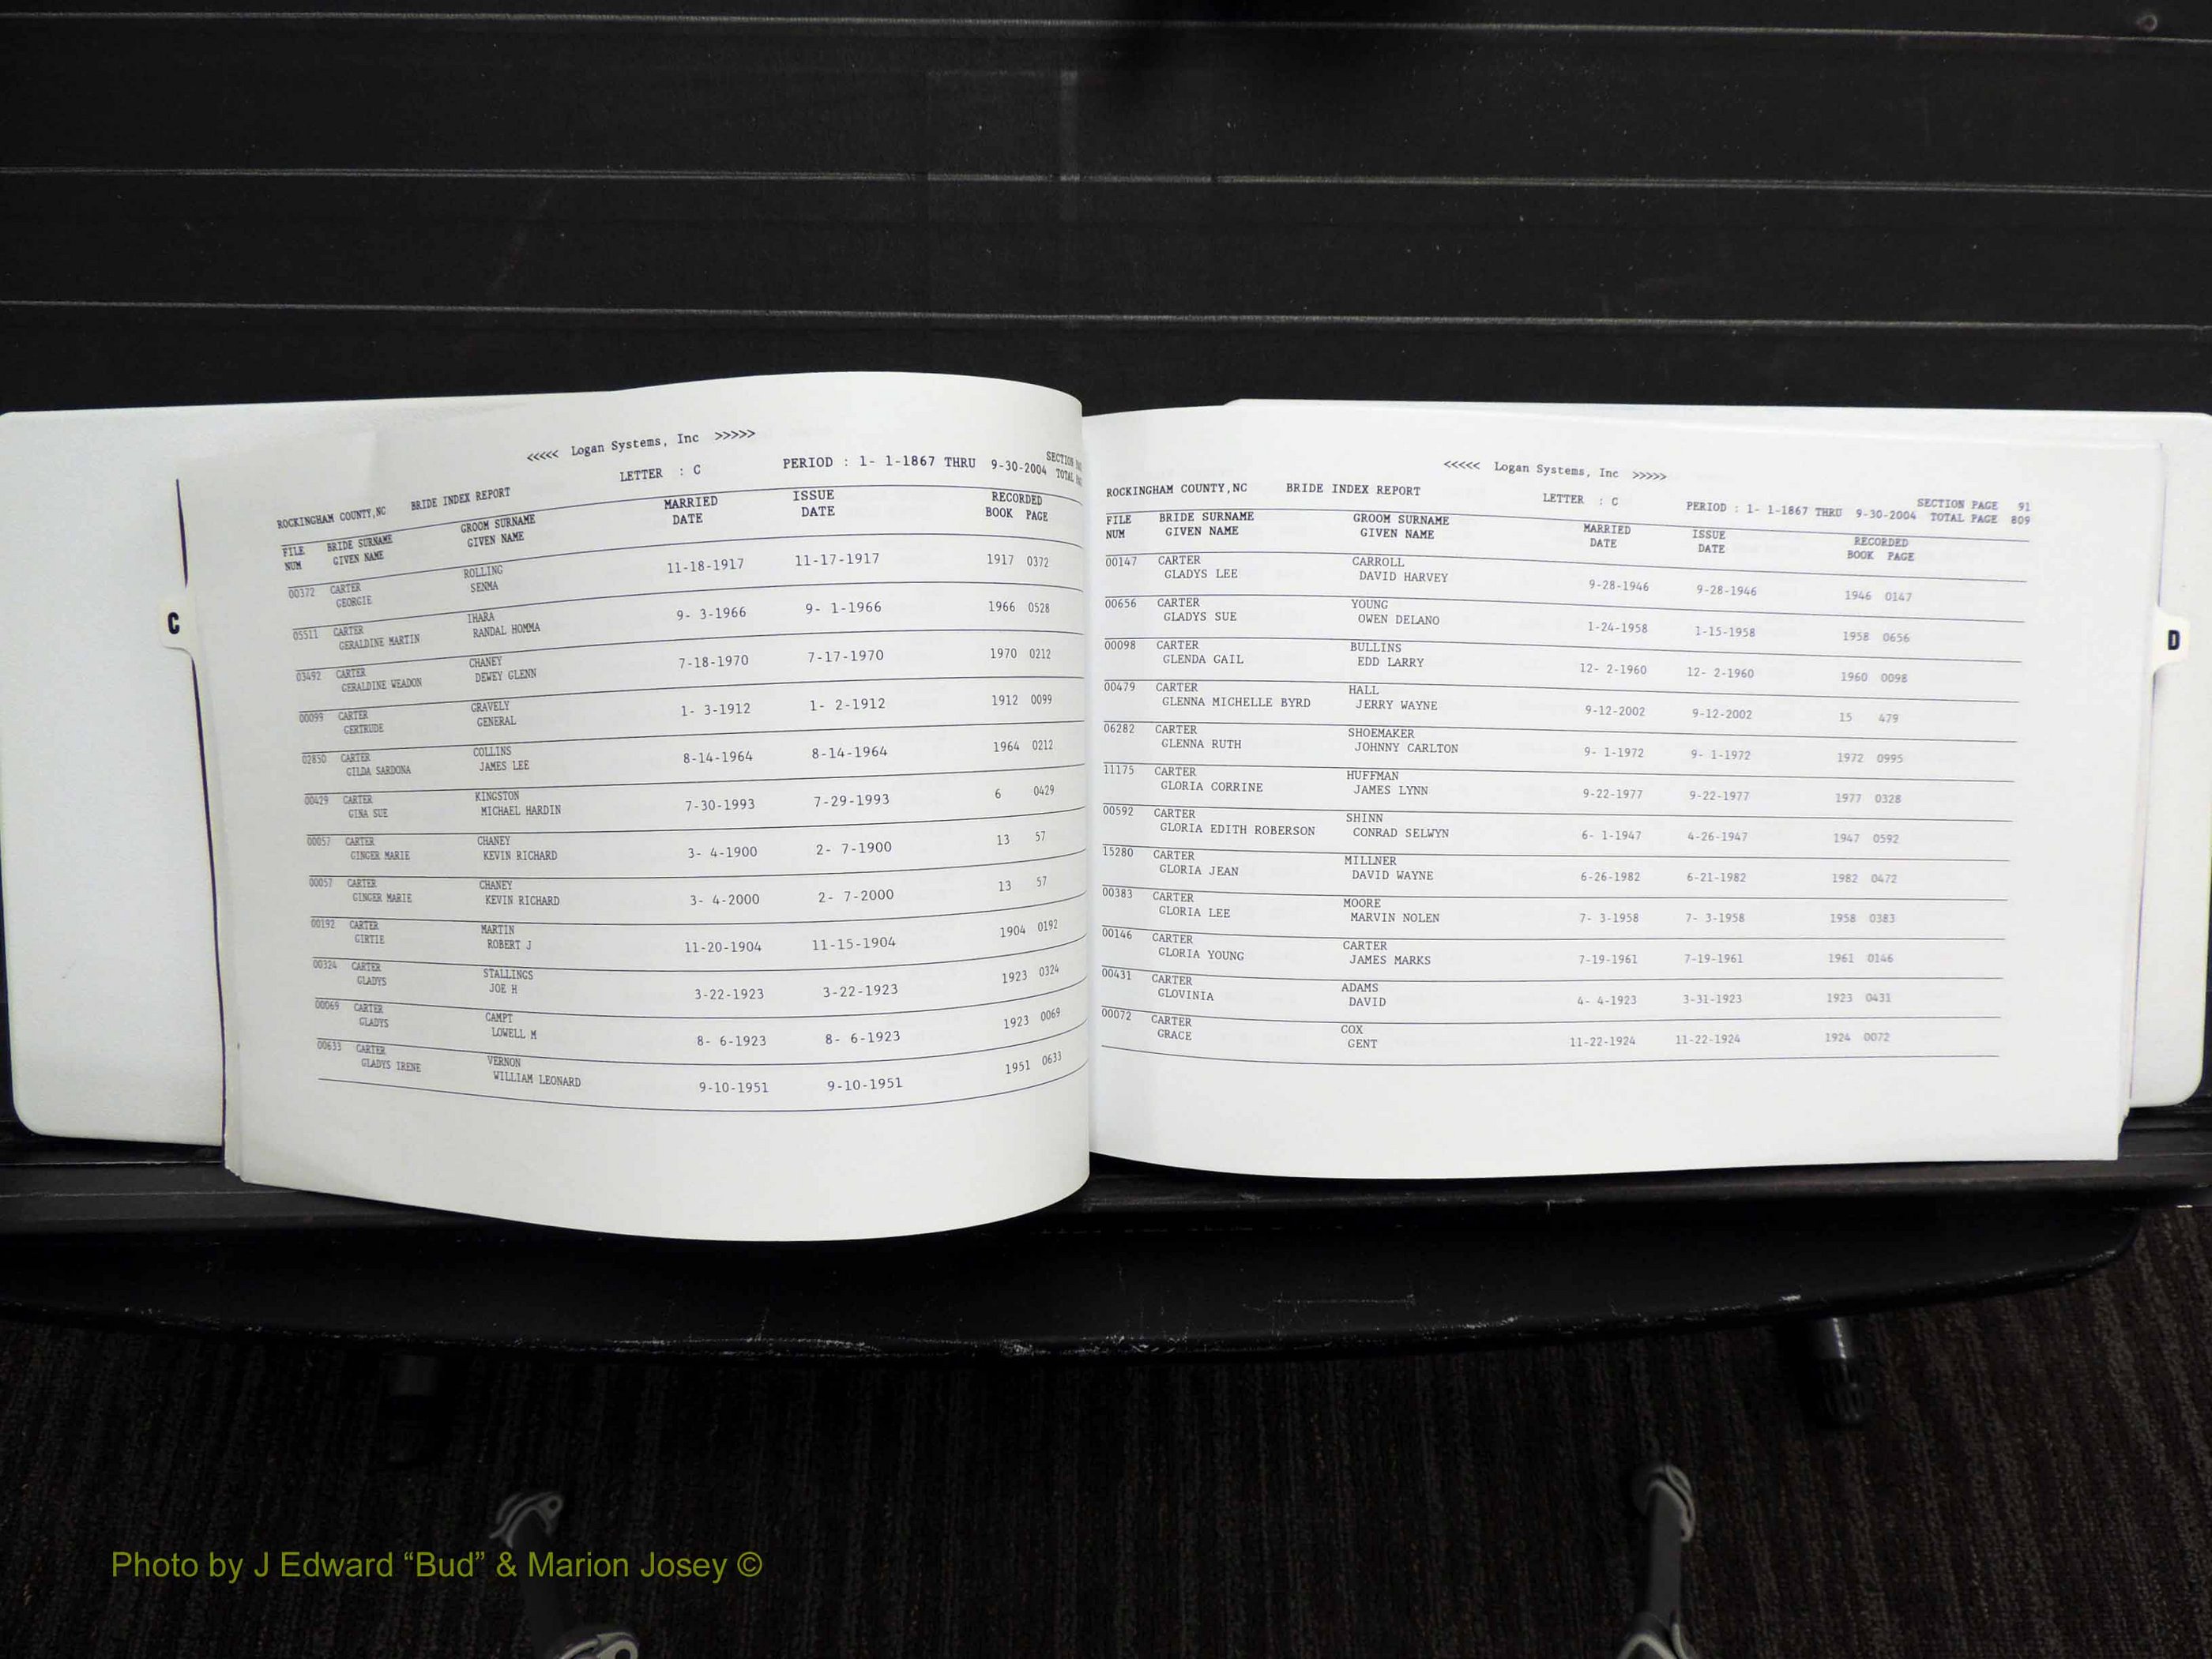 <<<<< Logan Systems, Inc >>>>>
ROCKINGHAM COUNTY,NC BRIDE INDEX REPORT LETTER : C PERIOD : 1- 1-1867 THRU 9-30-2004 SECTION
TOTAL
FILE BRIDE SURNAME GROOM SURNAME MARRIED ISSUE RECORDED
NUM GIVEN NAME GIVEN NAME DATE DATE BOOK PAGE
00372 CARTER ROLLING 11-18-1917 11-17-1917 1917 0372
GEORGIE SENMA
05511 CARTER IHARA 9- 3-1966 9- 1-1966 1966 0528
GERALDINE MARTIN RANDAL HOMMA
03492 CARTER CHANEY 7-18-1970 7-17-1970 1970 0212
GERALDINE WEADON DEWEY GLENN
00099 CARTER GRAVELY 1- 3-1912 1- 2-1912 1912 0099
GERTRUDE GENERAL
02850 CARTER COLLINS 8-14-1964 8-14-1964 1964 0212
GILDA SARDONA JAMES LEE
00429 CARTER KINGSTON 7-30-1993 7-29-1993 6 0429
GINA SUE MICHAEL HARDIN
00057 CARTER CHANEY 3- 4-1900 2- 7-1900 13 57
GINGER MARIE KEVIN RICHARD
00057 CARTER CHANEY 3- 4-2000 2- 7-2000 13 57
GINGER MARIE KEVIN RICHARD
00192 CARTER MARTIN 11-20-1904 11-15-1904 1904 0192
GIRTIE ROBERT J
00324 CARTER STALLINGS 3-22-1923 3-22-1923 1923 0324
GLADYS JOE H
00069 CARTER CAMPT 8- 6-1923 8- 6-1923 1923 0069
GLADYS LOWELL M
00633 CARTER VERNON 9-10-1951 9-10-1951 1951 0633
GLADYS IRENE WILLIAM LEONARD
C
<<<<< Logan Systems, Inc >>>>>
ROCKINGHAM COUNTY,NC BRIDE INDEX REPORT LETTER : C PERIOD : 1- 1-1867 THRU 9-30-2004 SECTION PAGE 91
TOTAL PAGE 809
FILE BRIDE SURNAME GROOM SURNAME MARRIED ISSUE RECORDED
NUM GIVEN NAME GIVEN NAME DATE DATE BOOK PAGE
00147 CARTER CARROLL 9-28-1946 9-28-1946 1946 0147
GLADYS LEE DAVID HARVEY
00656 CARTER YOUNG 1-24-1958 1-15-1958 1958 0656
GLADYS SUE OWEN DELANO
00098 CARTER BULLINS 12- 2-1960 12- 2-1960 1960 0098
GLENDA GAIL EDD LARRY
00479 CARTER HALL 9-12-2002 9-12-2002 15 479
GLENNA MICHELLE BYRD JERRY WAYNE
06282 CARTER SHOEMAKER 9- 1-1972 9- 1-1972 1972 0995
GLENNA RUTH JOHNNY CARLTON
11175 CARTER HUFFMAN 9-22-1977 9-22-1977 1977 0328
GLORIA CORRINE JAMES LYNN
00592 CARTER SHINN 6- 1-1947 4-26-1947 1947 0592
GLORIA EDITH ROBERSON CONRAD SELWYN
15280 CARTER MILLNER 6-26-1982 6-21-1982 1982 0472
GLORIA JEAN DAVID WAYNE
00383 CARTER MOORE 7- 3-1958 7- 3-1958 1958 0383
GLORIA LEE MARVIN NOLEN
00146 CARTER CARTER 7-19-1961 7-19-1961 1961 0146
GLORIA YOUNG JAMES MARKS
00431 CARTER ADAMS 4- 4-1923 3-31-1923 1923 0431
GLOVINIA DAVID
00072 CARTER COX 11-22-1924 11-22-1924 1924 0072
GRACE GENT
D
Photo by J Edward “Bud” & Marion Josey ©